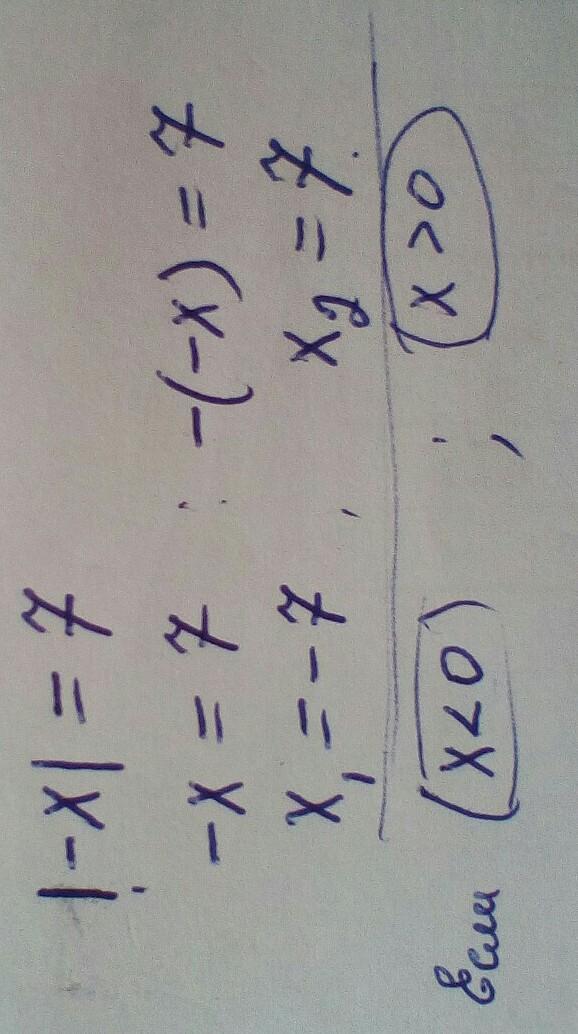 |-x| = 7
-x = 7 ; -(-x) = 7
x₁ = -7 , x₂ = 7.
Если (x<0) ; (x>0)